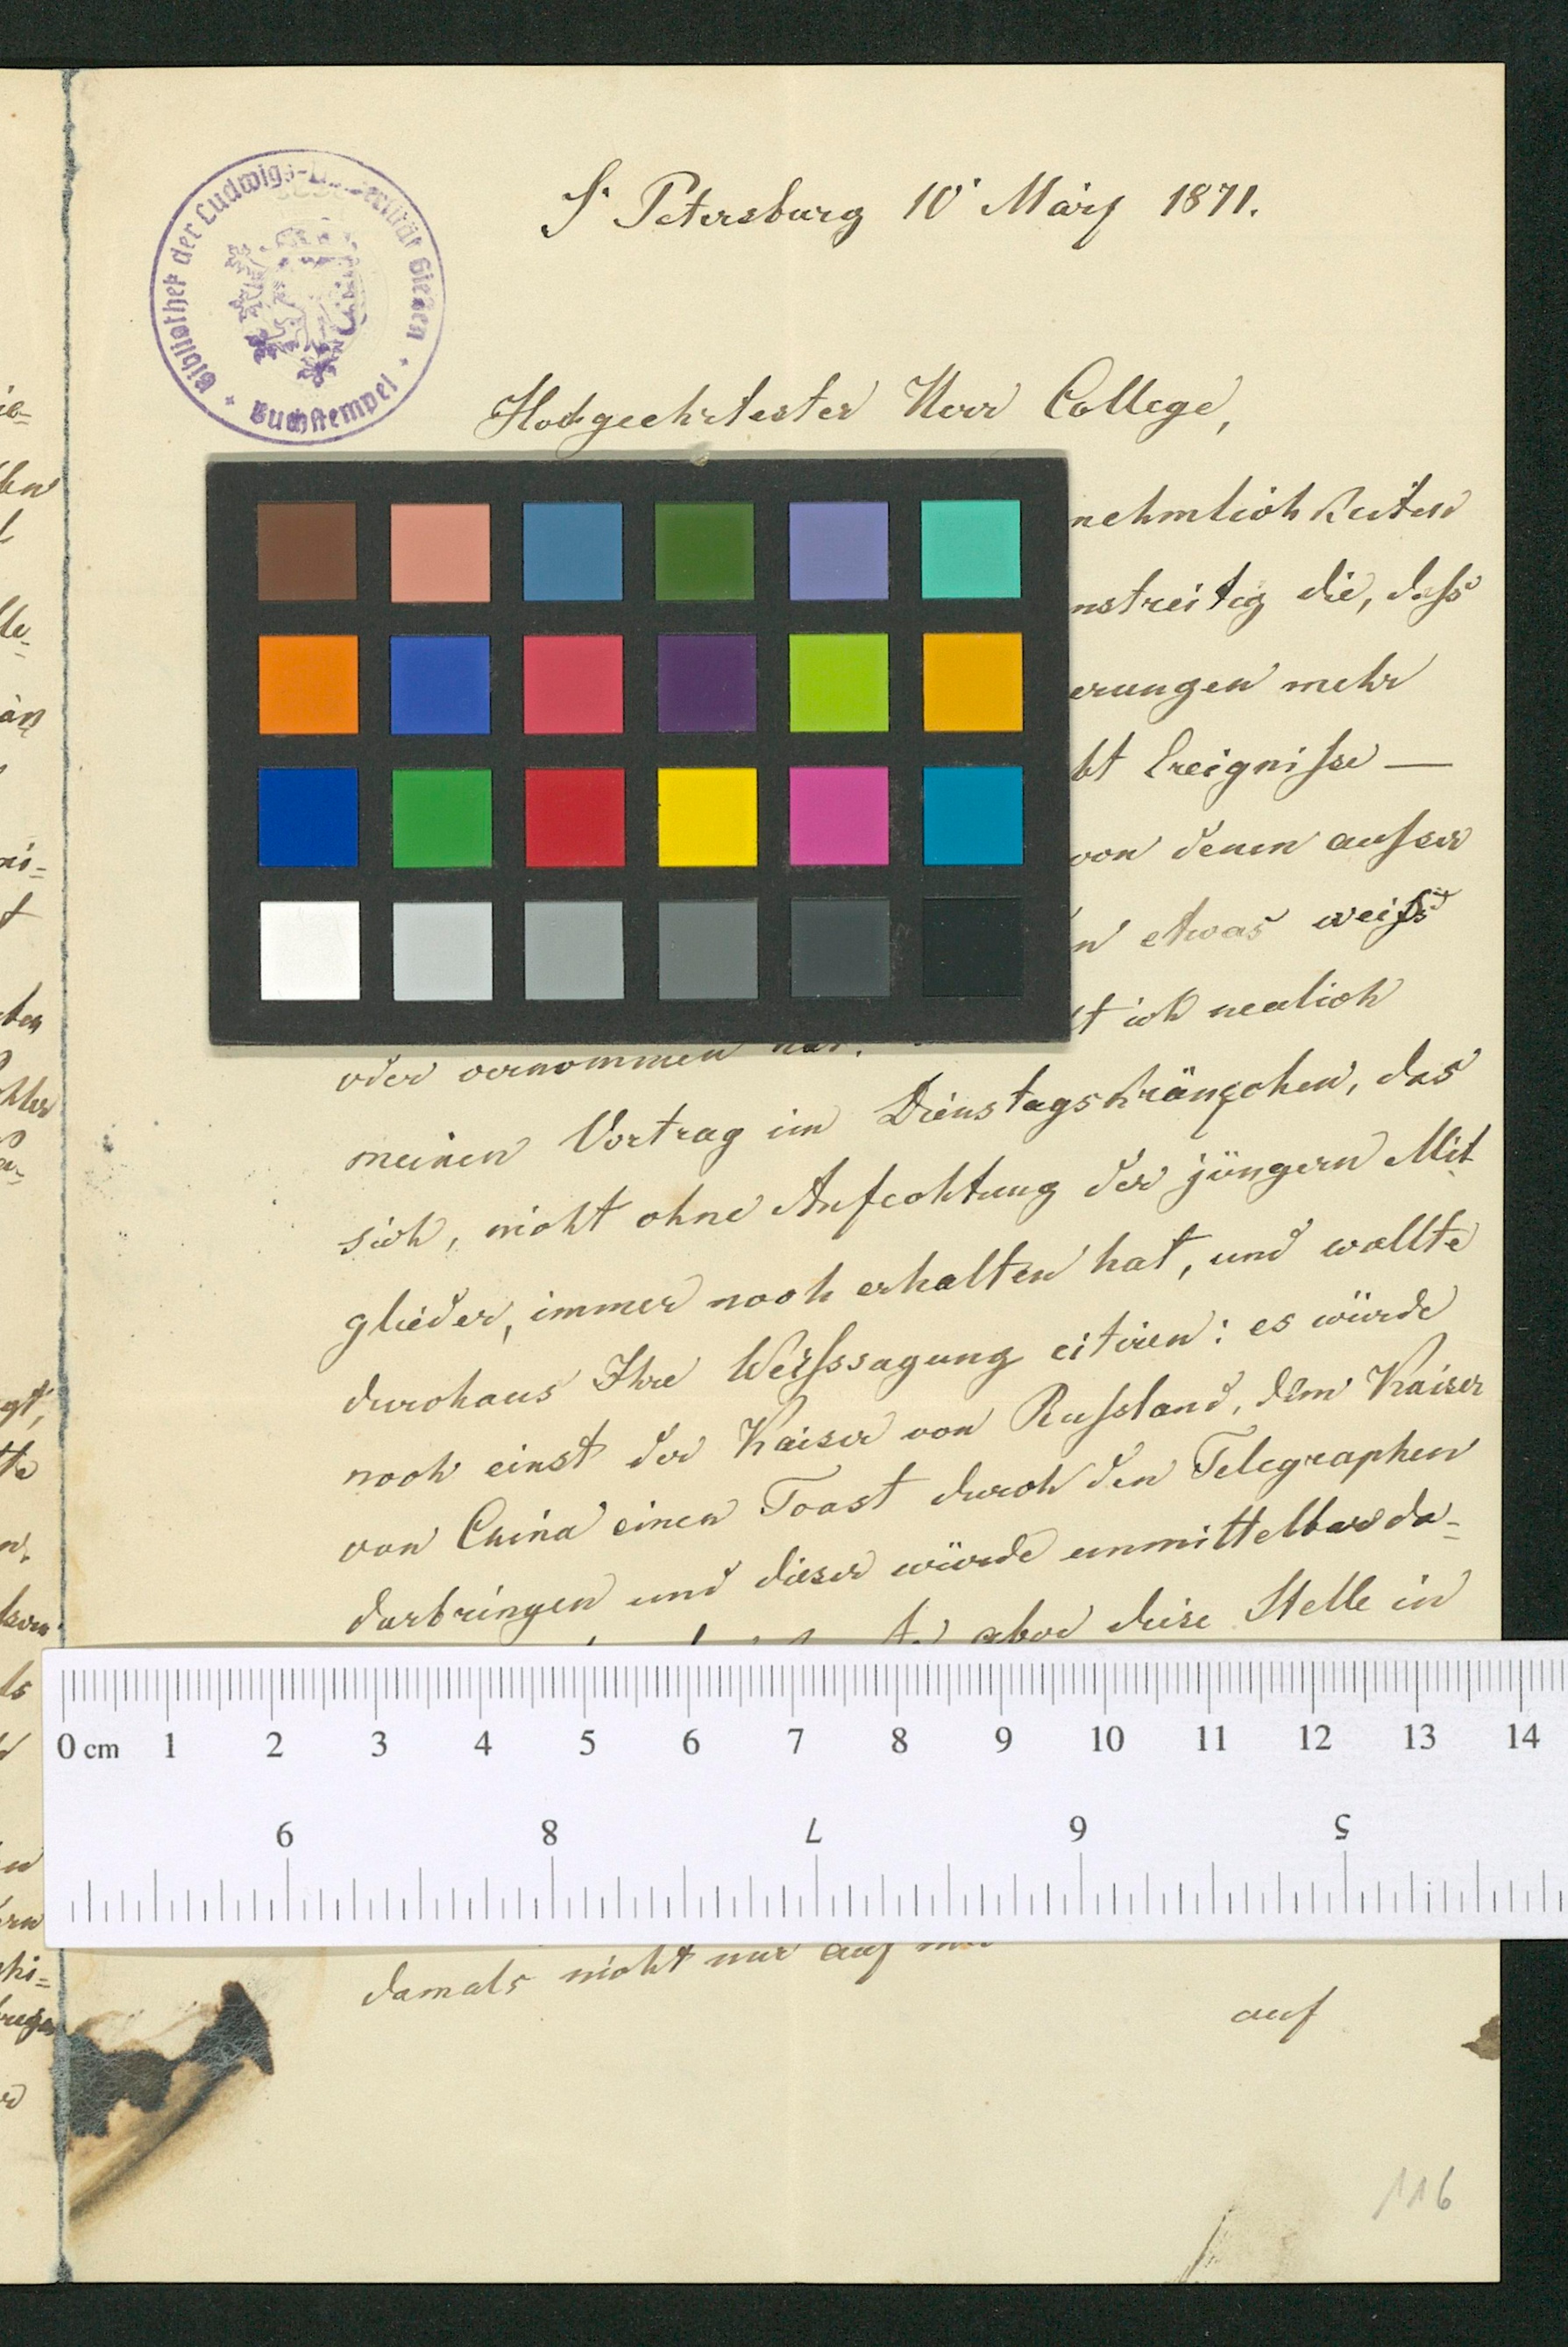 St Petersburg 10 März 1871.
Bibliothek der Ludwigs-Universität Gießen
Buchstempel
Hochgeehrtester Herr College,
nehmlichkeiten
nstreitig die, daſs
erungen mehr
bt Ereigniſse —
von denen auſser
n etwas weiſs
t ich neulich
oder vernommen hat.
meinen Vortrag im Dienstagskränzchen, das
sich, nicht ohne Anfechtung der jüngern Mit
glieder, immer noch erhalten hat, und wollte
durchaus Ihre Weiſssagung citiren: es würde
noch einst der Kaiser von Ruſsland, dem Kaiser
von China einen Toast durch den Telegraphen
darbringen und dieser würde unmittelbar da-
aber diese Stelle in
0 cm 1 2 3 4 5 6 7 8 9 10 11 12 13 14
9 8 7 6 5
damals nicht nur auf
auf
116